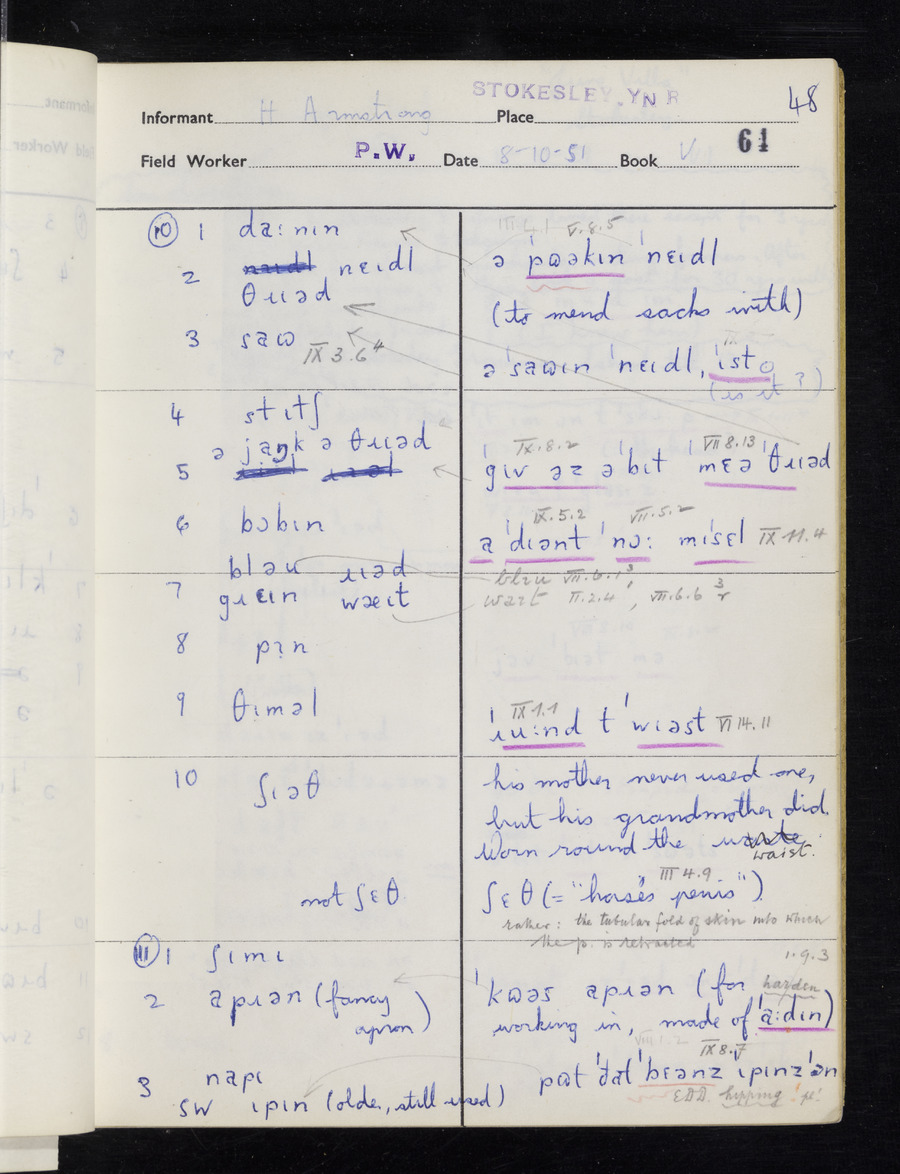 STOKESLEY, Y N R
48
Informant H Armstrong Place
Field Worker P.W. Date 8-10-51 Book V 61
10 1 da:nɪn
III.4.1 V.8.5
2 nɛɪdl
ə ˈpɷəkɪn ˈnɛɪdl
θɹɪəd
(to mend sacks with)
3 saɷ
IX 3.6⁴
ə ˈsaɷɪn ˈnɛɪdl, ˈɪstə
(is it?)
4 stɪtʃ
5 ə jaŋk ə θɹɪəd
IX.8.2 VII 8.13
ˈgɪv əz ə ˈbɪt ˈmɛə ˈθɹɪəd
6 bɔbɪn
IX.5.2 VII.5.2
a ˈdɪənt ˈnɔ: mɪˈsɛl IX 11.4
7 bləu ɹɪəd
blɪu VII.6.1³,
gɹɛɪn wæɛɪt
waɪt II.2.4, VII.6.6 ³r
8 pɪn
9 θɪməl
IX 1.1
ˈɹu:nd t ˈwɪəst VI 14.11
10 ʃɪəθ
his mother never used one,
but his grandmother did.
Worn round the waist.
III 4.9
not ʃɛθ
ʃɛθ (= "horse's penis")
rather: the tubular fold of skin into which
the p. is retracted
11 1 ʃɪmɪ
1.9.3
2 apɹən (fancy apron)
ˈkɷəs apɹən (for
harden
working in, made of ˈa:dɪn)
VIII 1.2 IX 8.7
3 napɪ
pɷt ˈðat ˈbɪənz ˈɪpɪnz ˈɒn
SW ɪpɪn (older, still used)
EDD hipping 'pl'